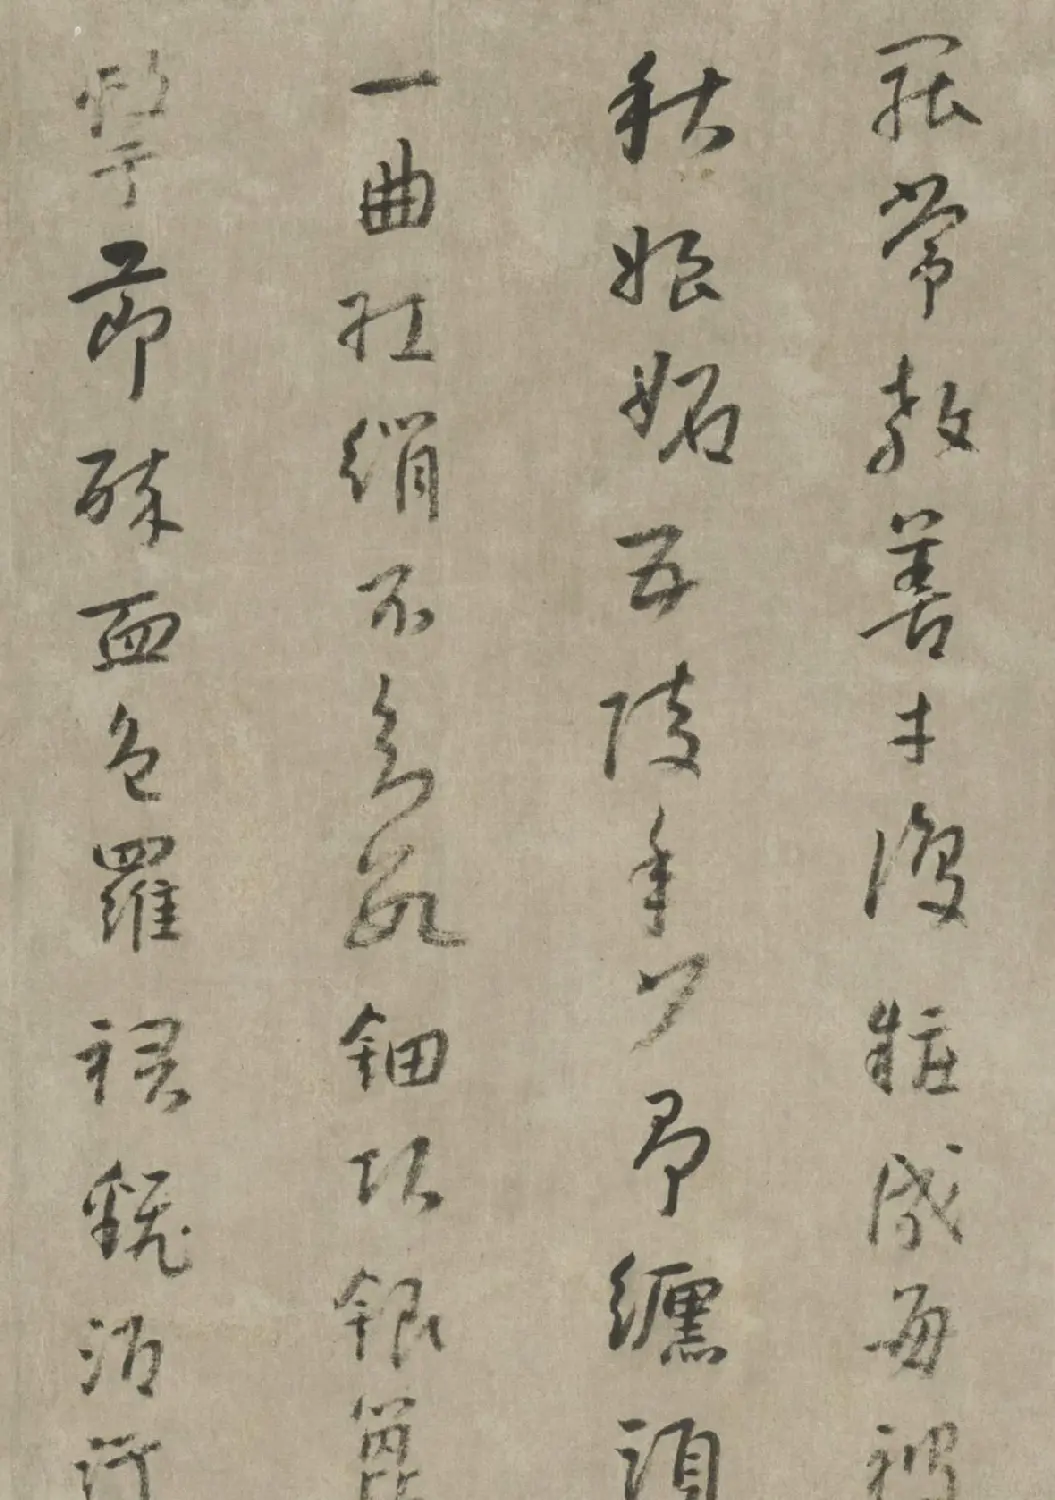 罷常教善才伏粧成每被
秋娘妬五陵年少爭纏頭
一曲紅綃不知數鈿頭銀篦
擊節碎血色羅裙翻酒汙